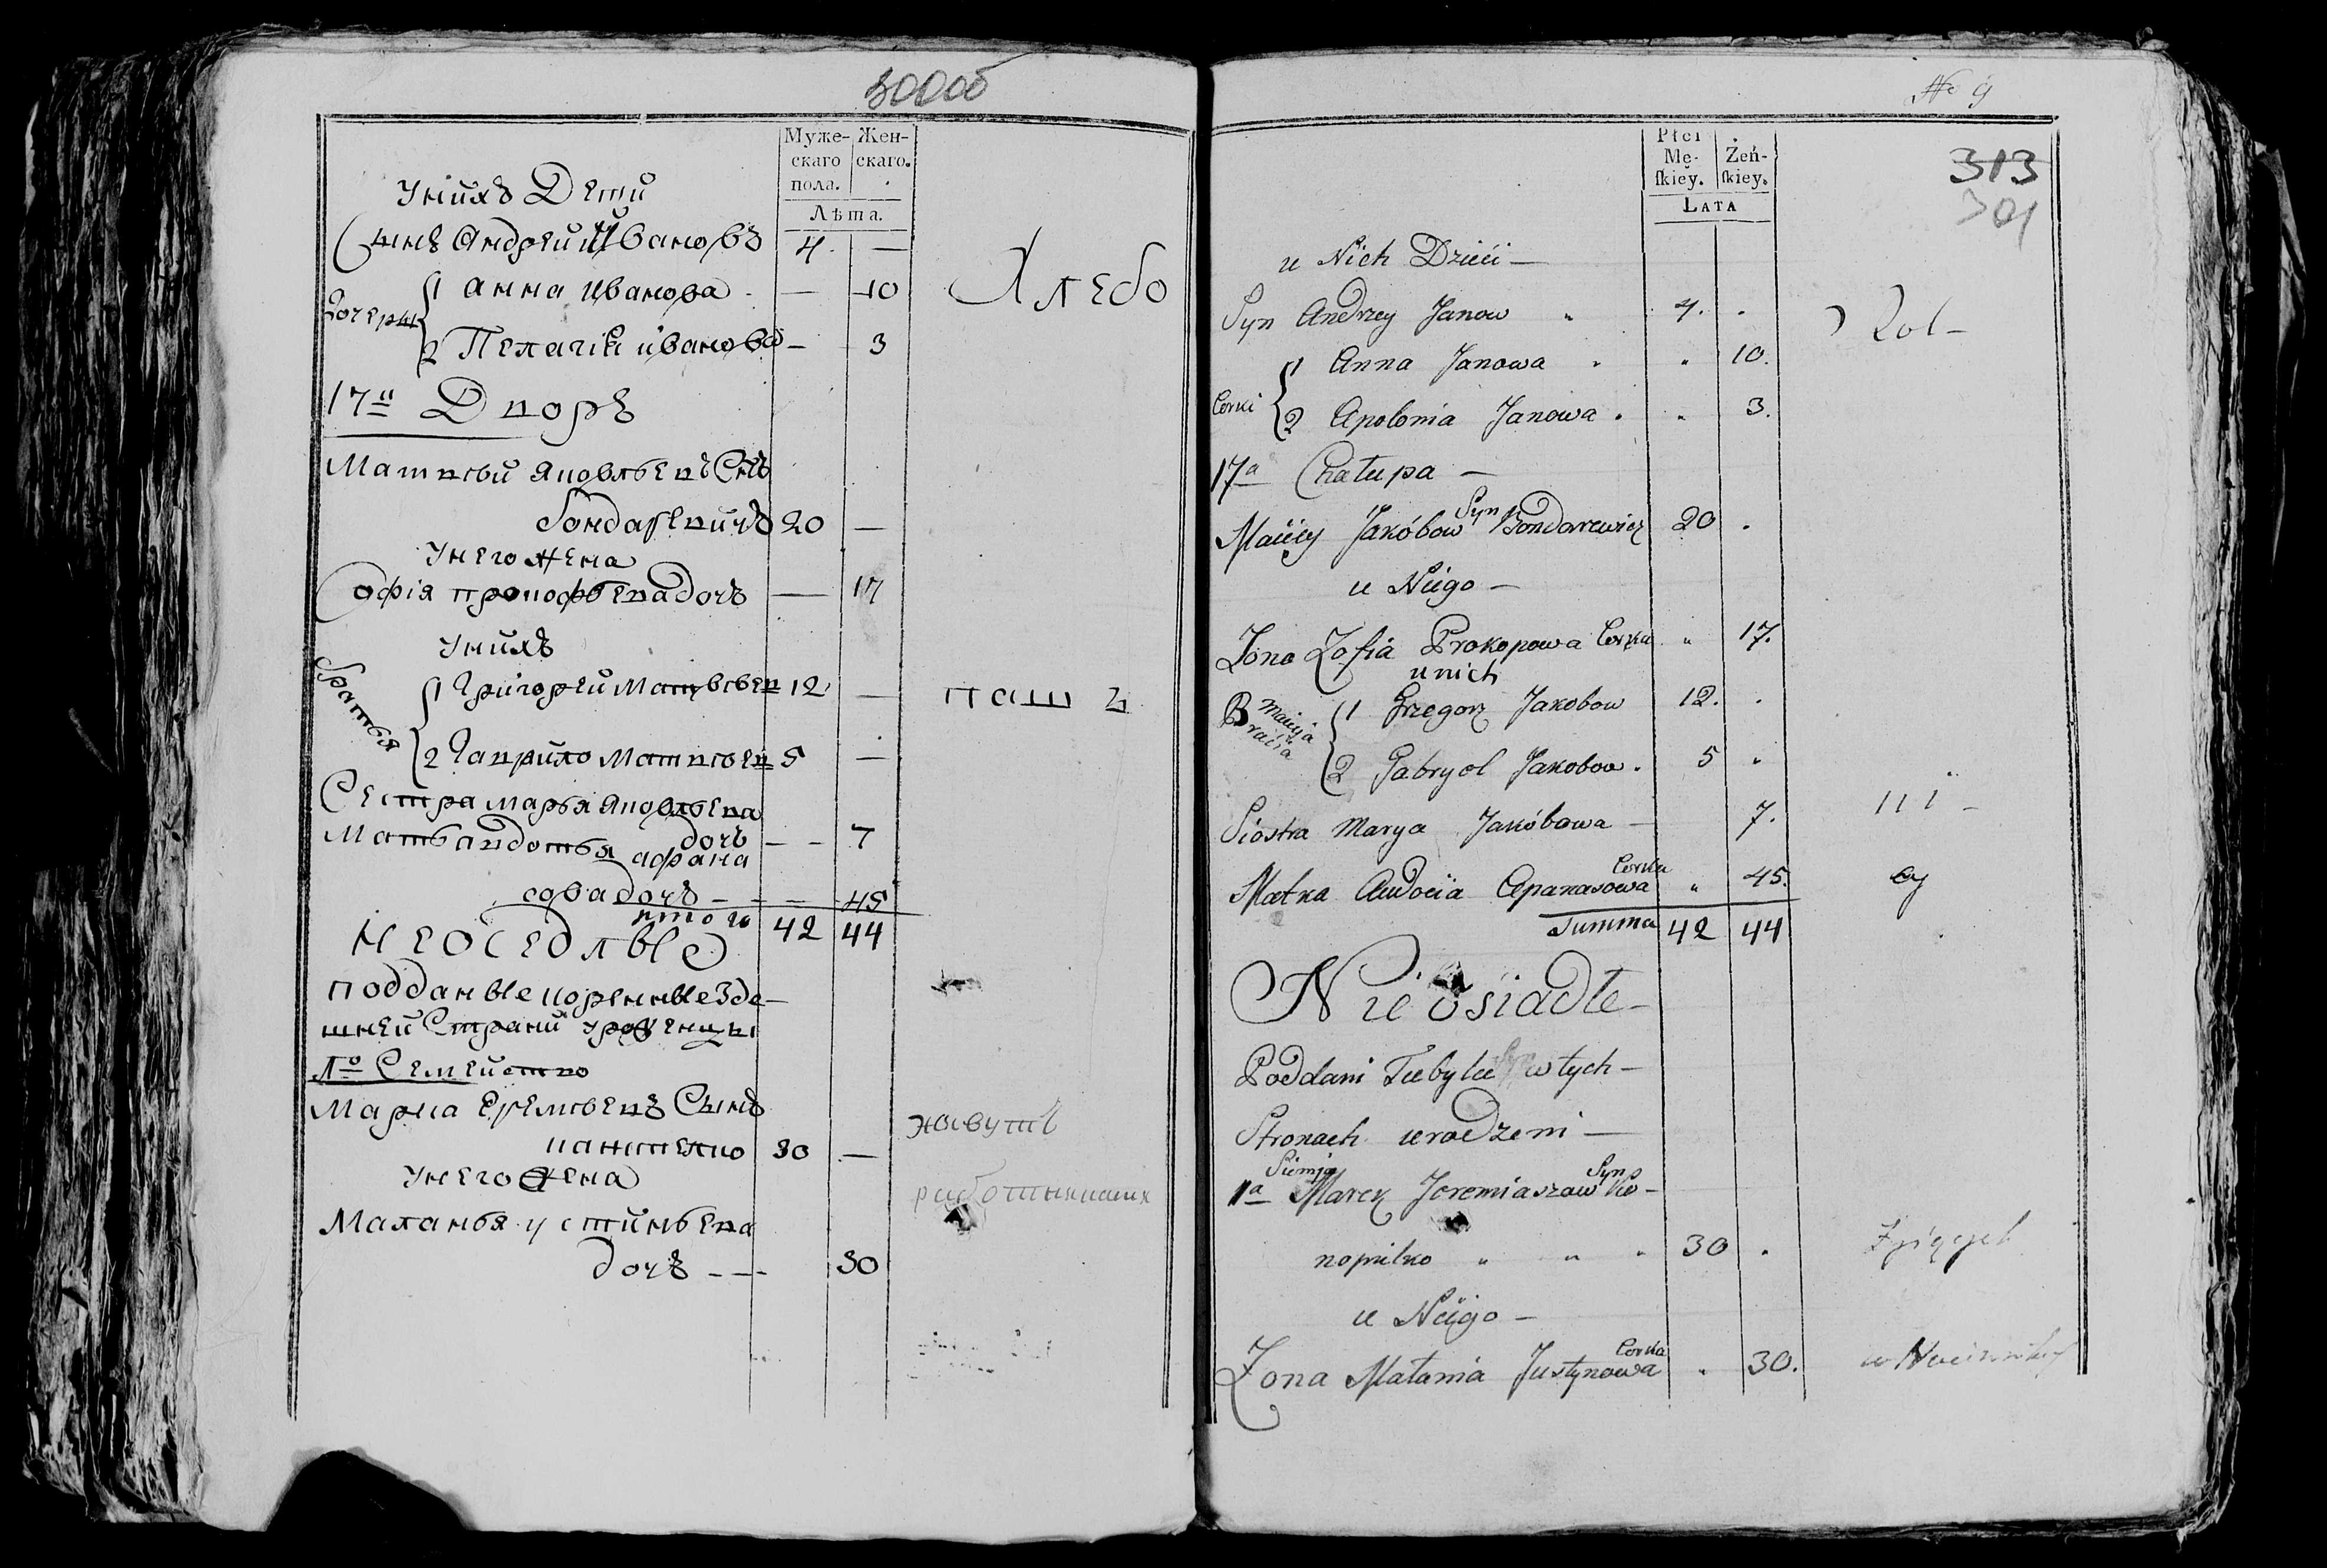 300об
Муже- Жен-
скаго скаго.
пола.
Лѣта.
Унихъ Дети
Сынъ Андрей Ивановъ 4. —
Дочери
1 Анна Иванова - — 10
2 Пелагія Иванова — 3
Хлебо
17й Дворъ
Матвѣй Яковлевъ Снъ
бондаревичъ 20 —
Унего жена
Софія прокофьева дочъ — 17
Унихъ
братья
1 Григорей Матвѣев 12 —
2 Гаврило Матвѣев 5 —
паш
Сестра марья Яковлева
дочъ — - 7
Мать авдотья афана
сова дочъ - - — 45
итого 42 44
неоседлые
подданые кореные зде-
шней Страни уроженцы
1о Семейство
Марка Еремѣевъ Сынъ
30 —
живутъ
Унего жена
Маланья устиньева
дочъ - — 30
№ 9
Płci
Mę- Żeń-
skiey. skiey.
LATA
313
301
u Nich Dzieci —
Syn Andrzey Janow „ 4. .
Corki
1 Anna Janowa . „ 10.
2 Apolonia Janowa . „ 3.
17a Chałupa —
Maciey Jakóbow Syn Bondarewicz 20 .
u Niego —
Żona Zofia Prokopowa Corka „ 17.
u nich
Bracia Macieja
1 Grzegorz Jakobow 12. .
2 Gabryel Jakobow . 5 .
Siostra Marya Jakóbowa — 7.
Matka Audocia Apanasowa Corka „ 45.
Summa 42 44
Nie osiadłe —
Poddani Tubylcy w tych —
Stronach urodzeni —
1a Siemja Marek Jeremiaszow Syn Ko-
nopilko „ „ „ 30 .
u Niego —
Żona Małania Justynowa Corka . 30.